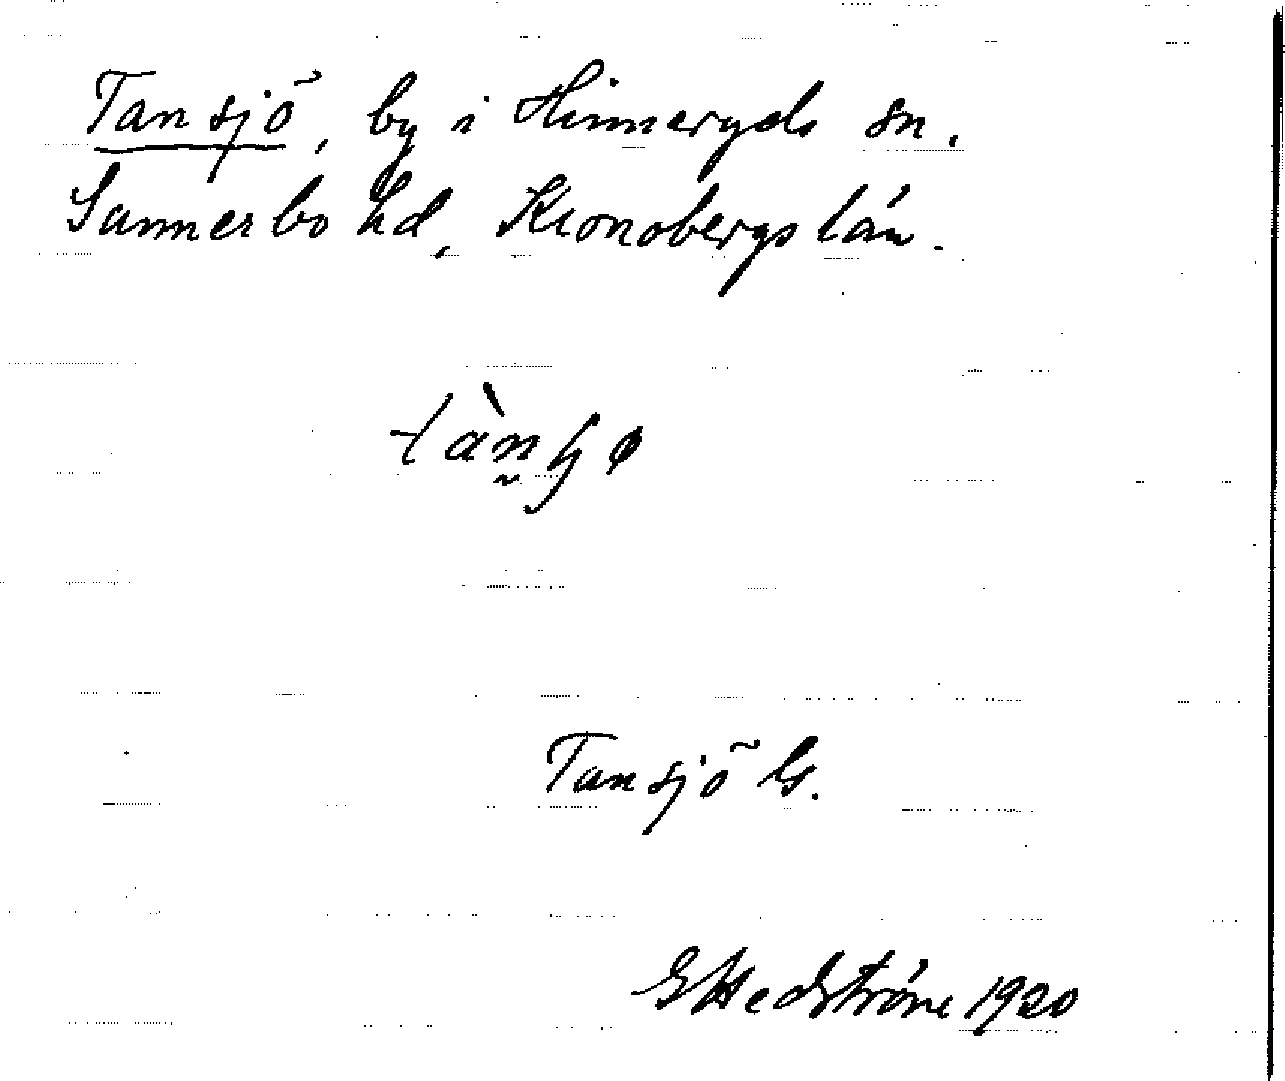 Tansjö, by i Hinneryds sn.
Sunnerbo hd, Kronobergs län.
Tansjö
G Hedström 1920